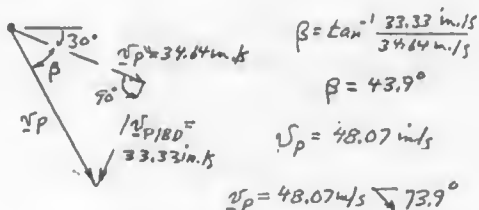 30°
β
v_P' = 34.64 in./s
90°
v_P
v_P/BD =
33.33 in./s
β = tan⁻¹ 33.33 in./s / 34.64 in./s
β = 43.9°
v_P = 48.07 in/s
v_P = 48.07 in/s ↘ 73.9°